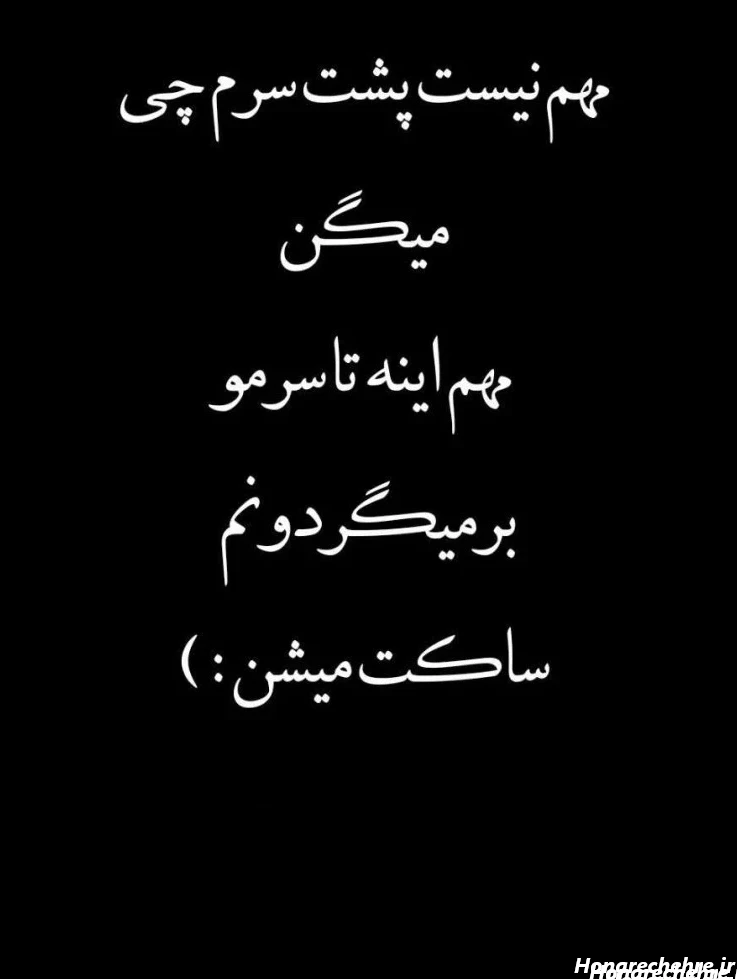 مهم نیست پشت سرم چی
میگن
مهم اینه تا سرمو
برمیگردونم
ساکت میشن : )
Honarechehre.ir
Honarechehre.ir